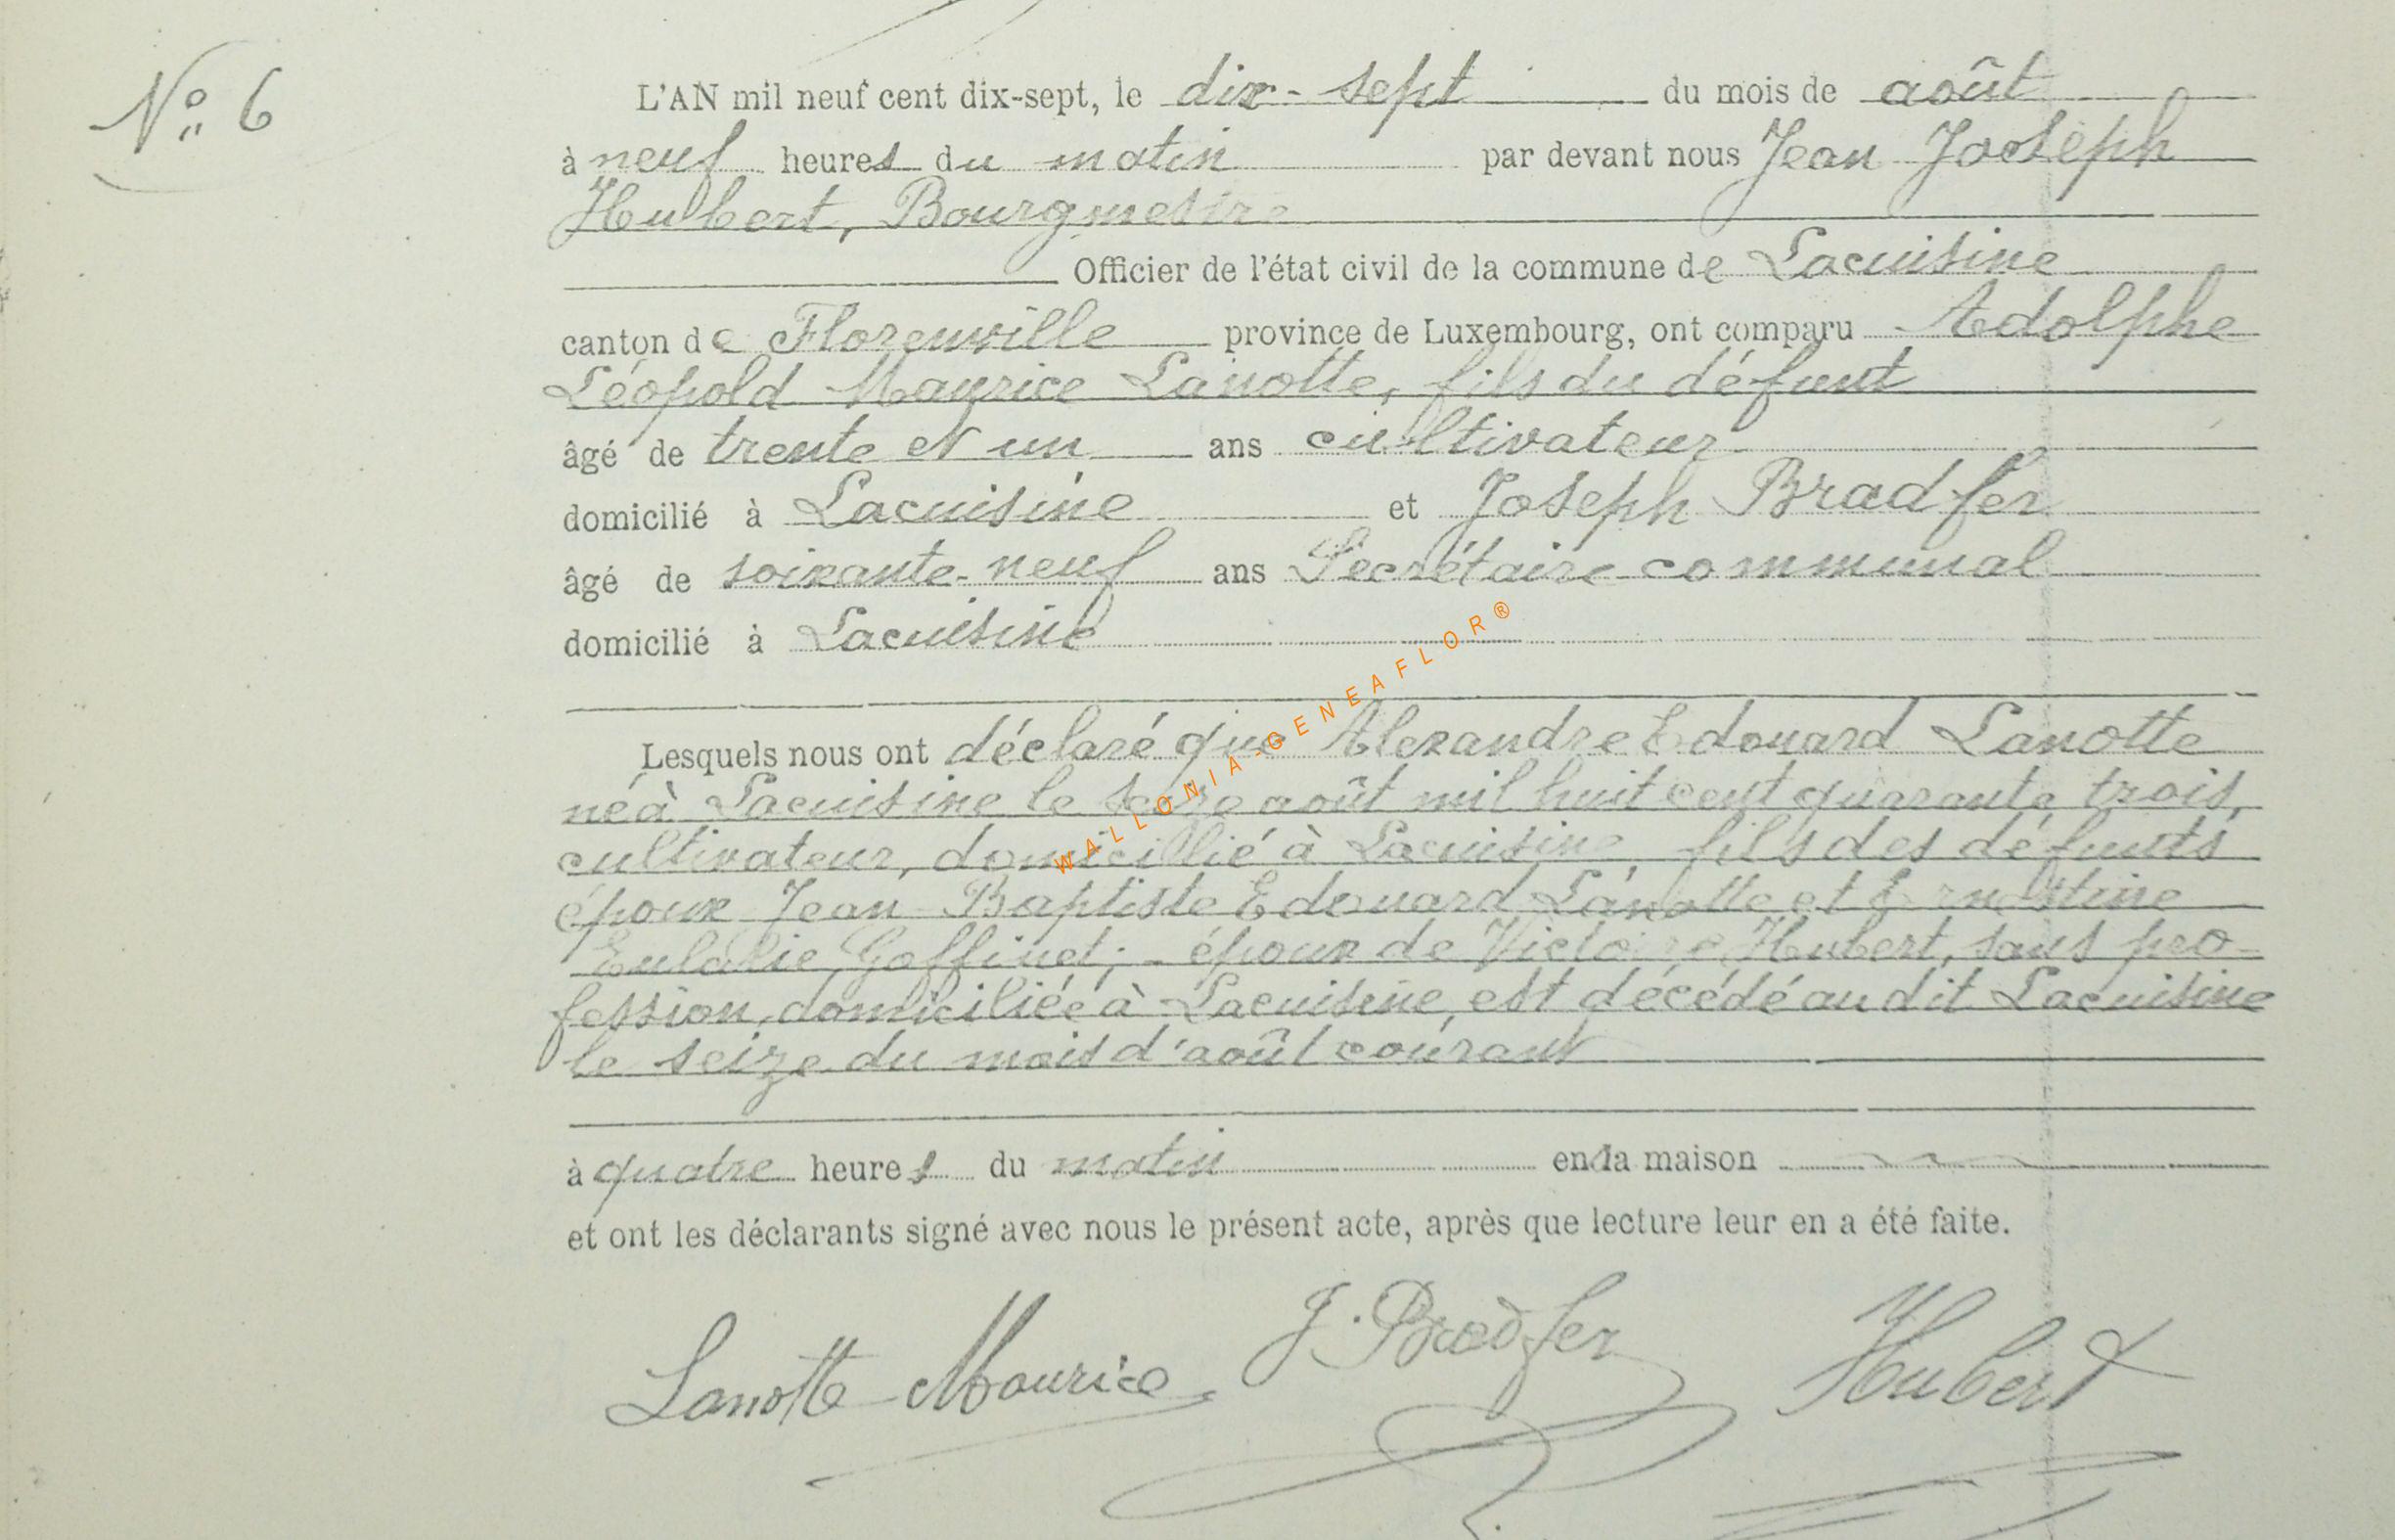 No 6
L'AN mil neuf cent dix-sept, le dix-sept du mois de août
à neuf heures du matin par devant nous Jean Joseph
Hubert, Bourgmestre
Officier de l'état civil de la commune de Lacuisine
canton de Florenville province de Luxembourg, ont comparu Adolphe
Léopold Maurice Lanotte, fils du défunt
âgé de trente et un ans cultivateur
domicilié à Lacuisine et Joseph Bradfer
âgé de soixante-neuf ans Secrétaire communal
domicilié à Lacuisine
Lesquels nous ont déclaré que Alexandre Edouard Lanotte
né à Lacuisine le août mil huit cent quarante trois,
cultivateur, domicilié à Lacuisine, fils des défunts
époux Jean Baptiste Edouard Lanotte et Ernestine
Eulalie Goffinet; - époux de Victoire Hubert, sans pro-
fession, domiciliée à Lacuisine, est décédé au dit Lacuisine
le seize du mois d'août courant
à quatre heures du matin en la maison
et ont les déclarants signé avec nous le présent acte, après que lecture leur en a été faite.
Lanotte Maurice J. Bradfer Hubert
WALLONIA-GENEAFLOR®